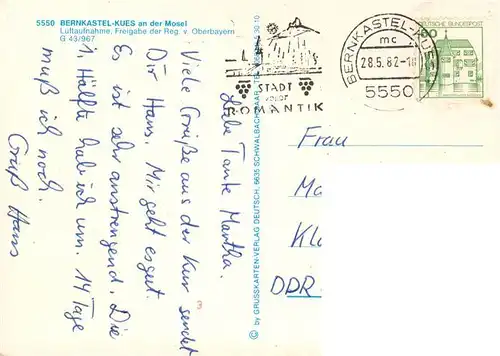 5550 BERNKASTEL-KUES an der Mosel
Luftaufnahme, Freigabe der Reg. v. Oberbayern
G 43/967
Liebe Tante Martha.
Viele Grüße aus der Kur sendet
Dir Hans. Mir geht es gut.
Es ist sehr anstrengend. Die
1. Hälfte hab ich um. 14 Tage
muß ich noch.
Gruß Hans
© by GRUSSKARTEN-VERLAG DEUTSCH, 6635 SCHWALBACH/SAAR
STADT
ROMANTIK
BERNKASTEL-KUES
mc
28.5.82-18
5550
DEUTSCHE BUNDESPOST
Frau
Ma
Kl
DDR